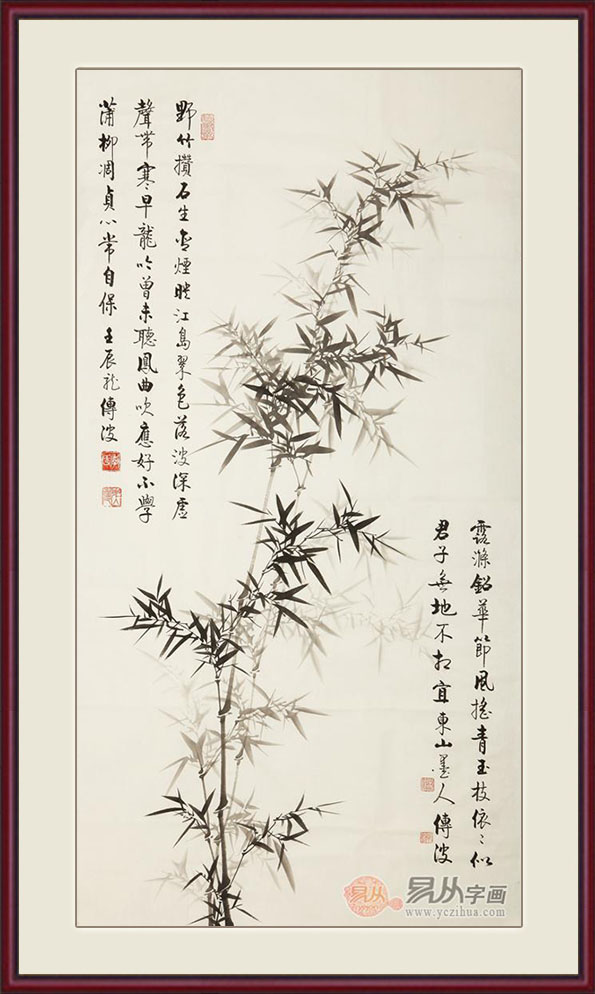 野竹攢石生含煙映江島翠色落波深虛
聲帶寒早龍吟曾未聽鳳曲吹應好不學
蒲柳凋貞心常自保 壬辰龙傳波
露滌鉛華節風搖青玉枝依〻似
君子無地不相宜 東山墨人傳波
易从
易从字画
www.yczihua.com